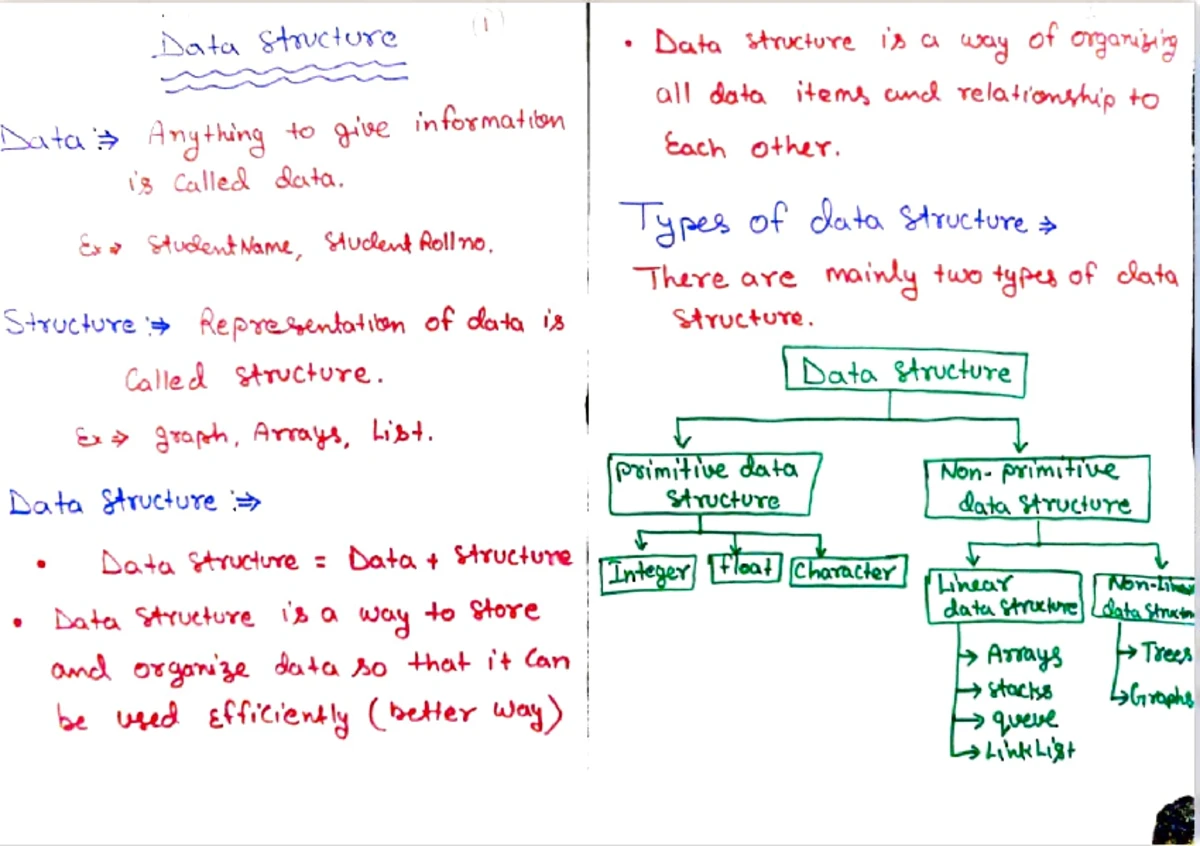 (1)
Data Structure
Data :⇒ Anything to give information
is Called data.
Ex ⇒ Student Name, Student Roll no.
Structure :⇒ Representation of data is
Called structure.
Ex ⇒ graph, Arrays, List.
Data Structure :⇒
• Data Structure = Data + Structure
• Data Structure is a way to store
and organize data so that it Can
be used Efficiently (better way)
• Data structure is a way of organizing
all data items and relationship to
Each other.
Types of data Structure ⇒
There are mainly two types of data
structure.
Data structure
primitive data
structure
Non-primitive
data structure
Integer
float
Character
Linear
data structure
→ Arrays
→ stacks
→ queue
→ Link List
Non-Linea
data Structu
→ Trees
→ Graphs